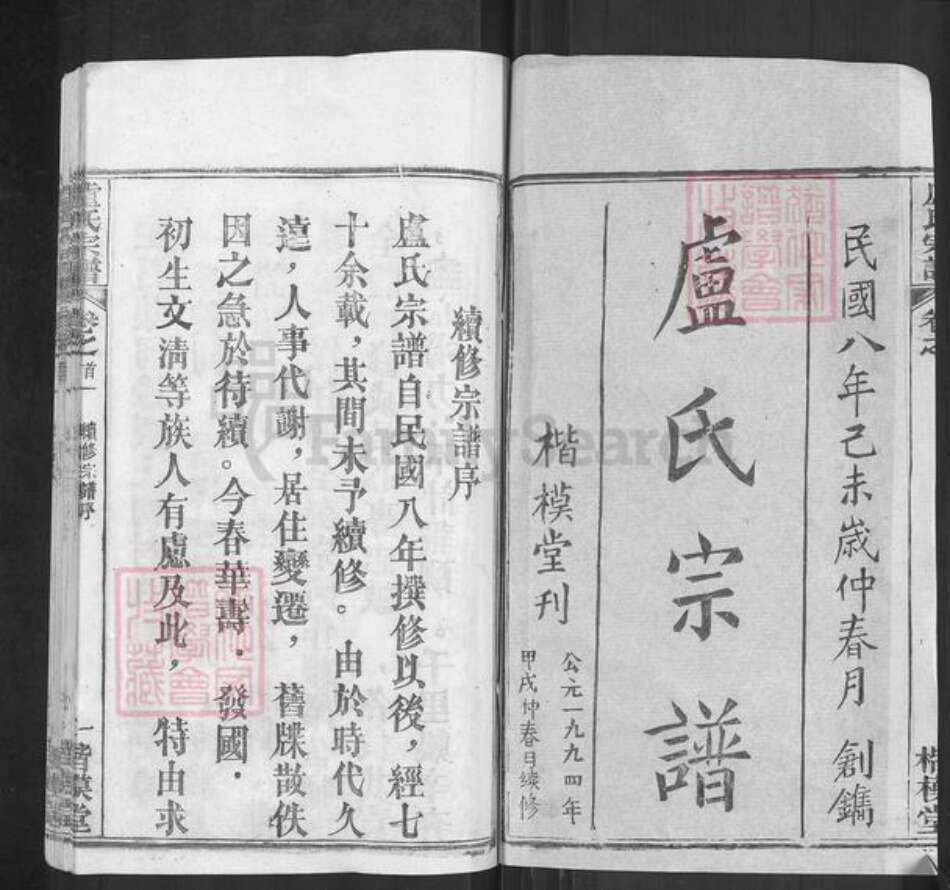 民國八年己未歲仲春月 創鐫
盧氏宗譜
楷模堂刊
公元一九九四年
甲戌仲春日續修
楷模堂
續修宗譜序
盧氏宗譜自民國八年撰修以後，經七
十余載，其間未予續修。由於時代久
遠，人事代謝，居住變遷，舊牒散佚
因之急於待續。今春華壽．發國．
初生文清等族人有慮及此，特由求
盧氏宗譜
卷之首
續修宗譜序
一
楷模堂
FamilySearch